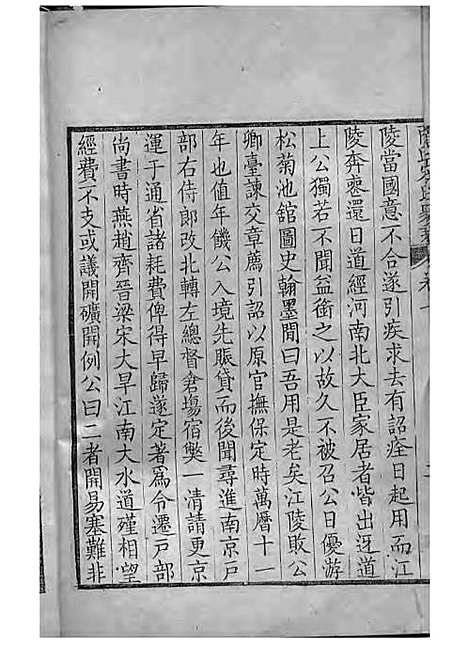 陵當國意不合遂引疾求去有詔痊日起用而江
陵奔喪還日道經河南北大臣家居者偕出迓道
上公獨若不聞益銜之以故久不被召公日優游
松菊池舘圖史翰墨閒曰吾用是老矣江陵敗公
卿臺諫交章薦引詔以原官撫保定時萬曆十一
年也值年饑公入境先賑貸而後聞尋進南京戶
部右侍郎改北轉左總督倉塲宿獘一清請更京
運于通省諸耗費俾得早歸遂定著爲令遷戸部
尚書時燕趙齊晉梁宋大旱江南大水道殣相望
經費不支或議開礦開例公曰二者開易塞難非